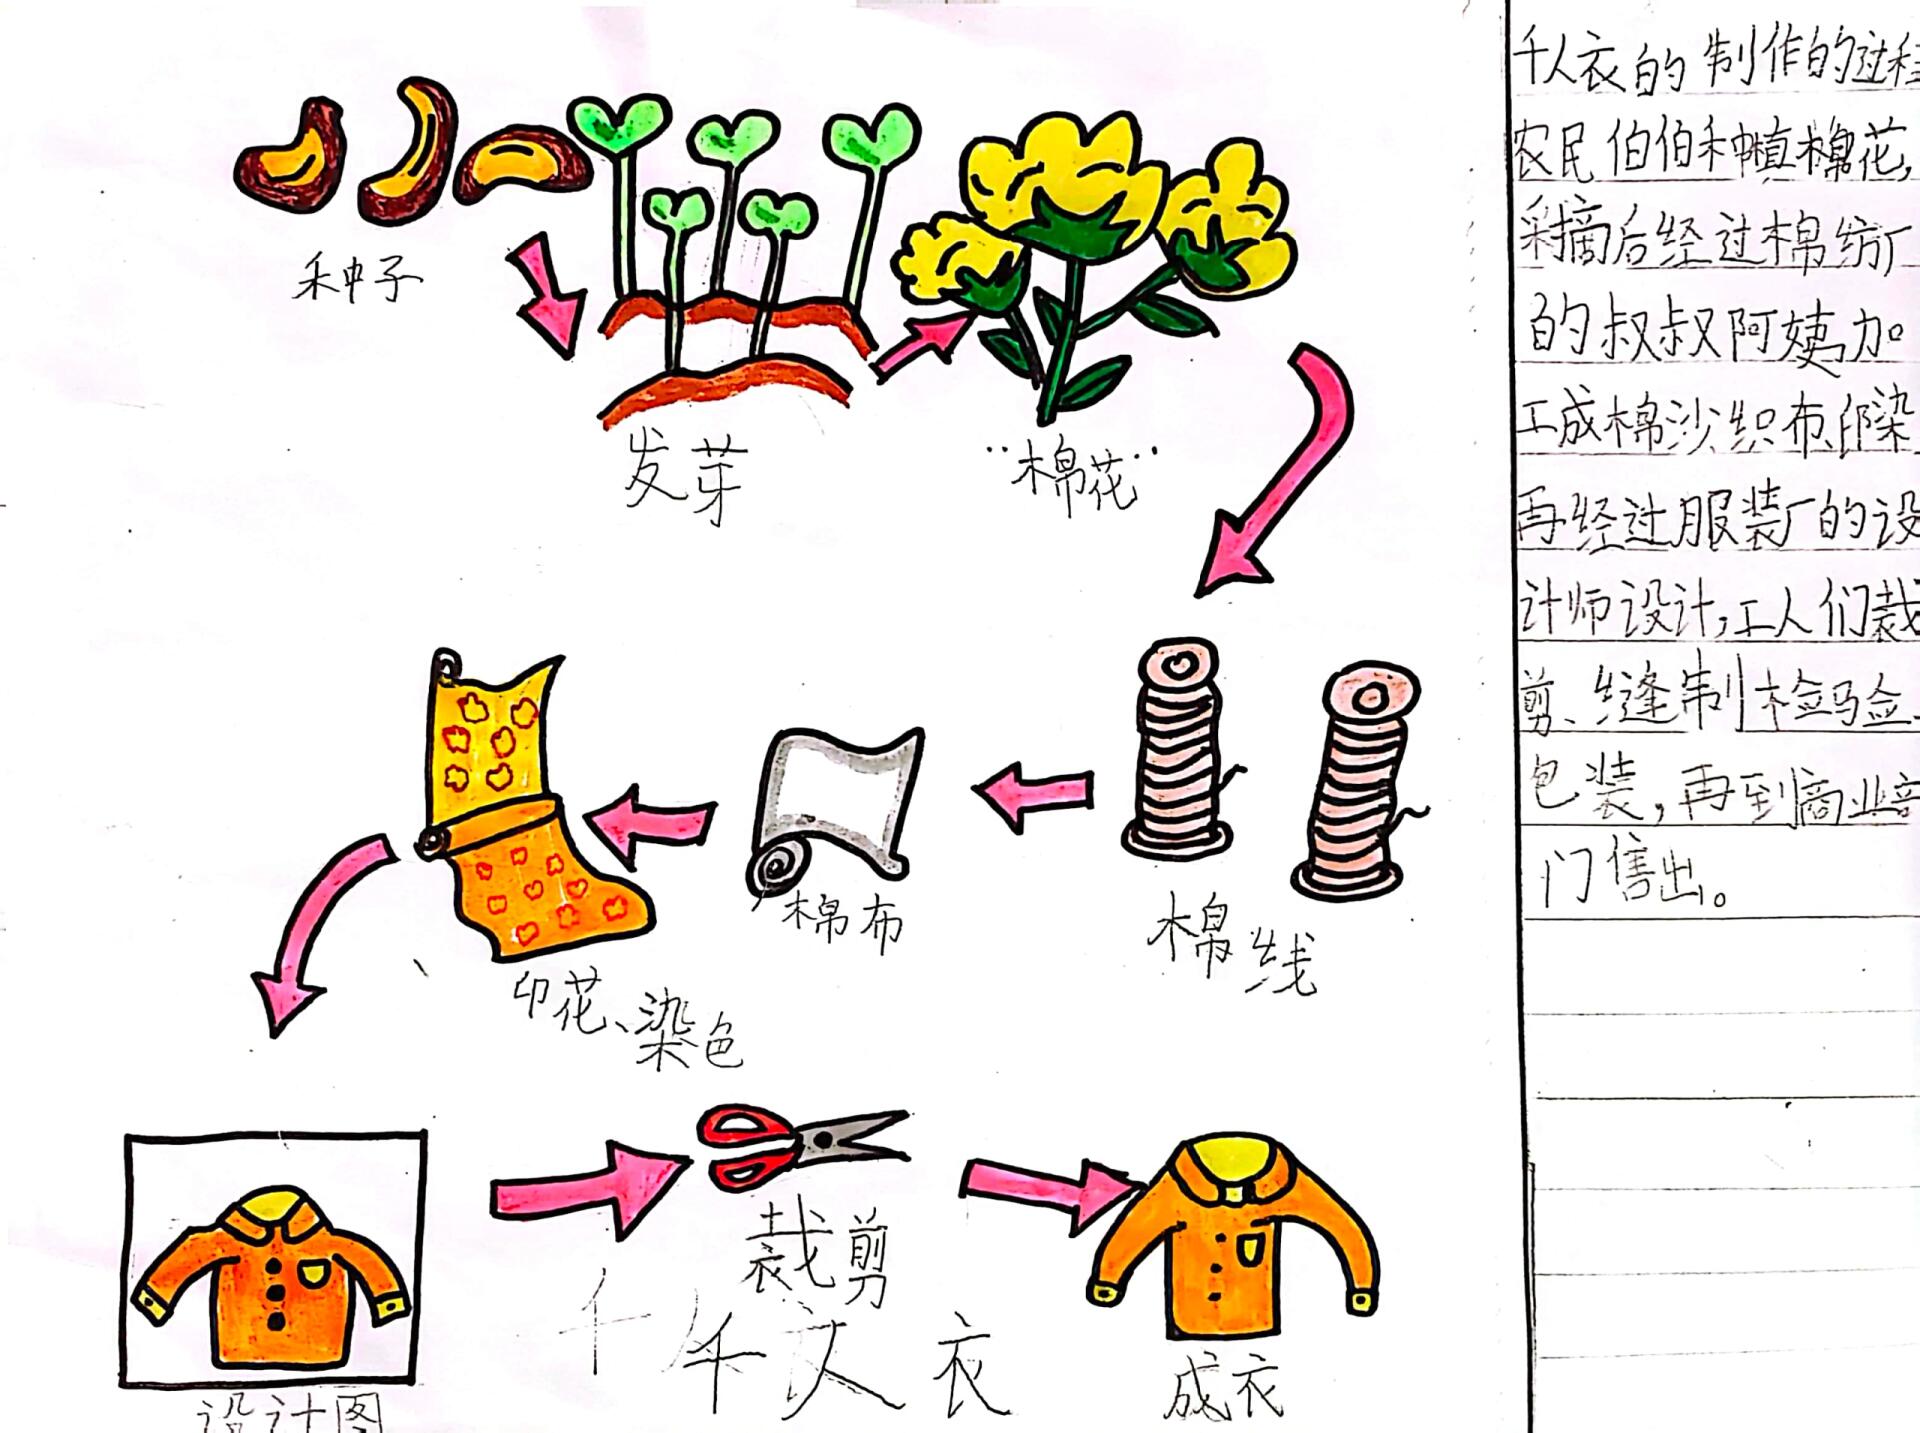 种子
发芽
"棉花"
棉线
棉布
印花、染色
设计图
裁剪
成衣
千人衣
千人衣的制作的过程
农民伯伯种植棉花,
采摘后经过棉纺厂
的叔叔阿姨加
工成棉沙织布印染
再经过服装厂的设
计师设计,工人们裁
剪、缝制检验
包装,再到商业部
门售出。